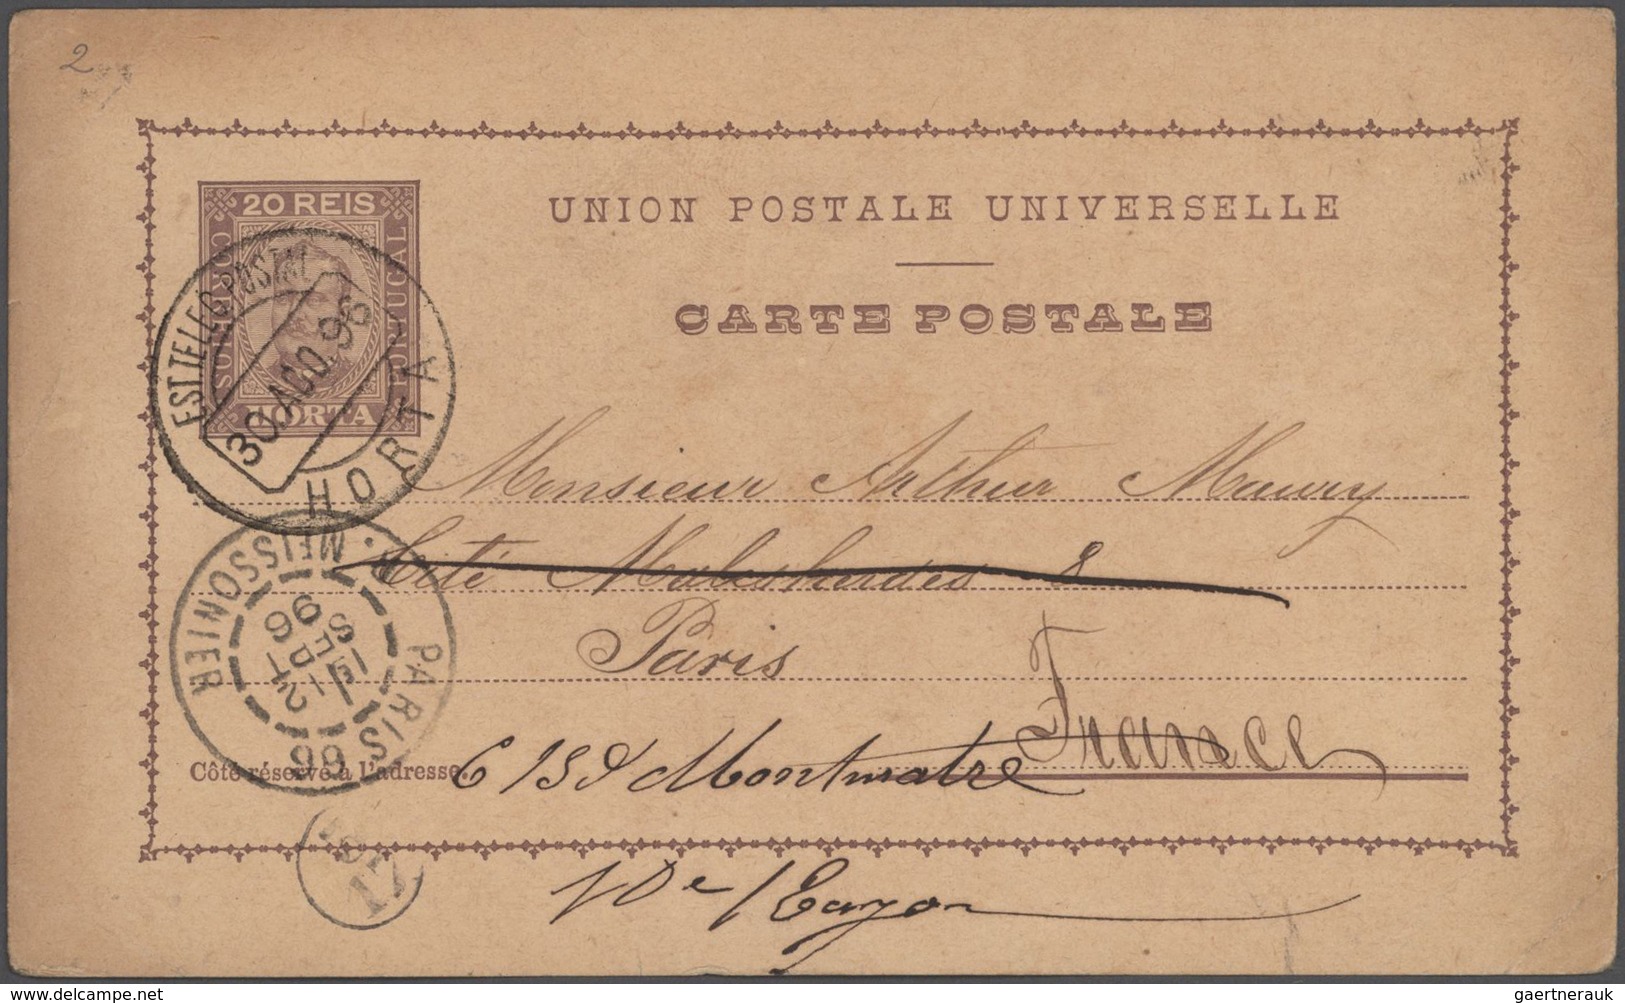 2
20 REIS
CORREIO
PORTUGAL
HORTA
UNION POSTALE UNIVERSELLE
CARTE POSTALE
EST. TELEG POSTAL
30. AGO. 96
HORTA
Monsieur Arthur Maury
Cité Malesherbes 8
Paris
France
PARIS
MEISSONIER
12
SEPT
96
66
Côté réservé à l'adresse.
6 Bd Montmatre
17
gaertnerauk
www.delcampe.net